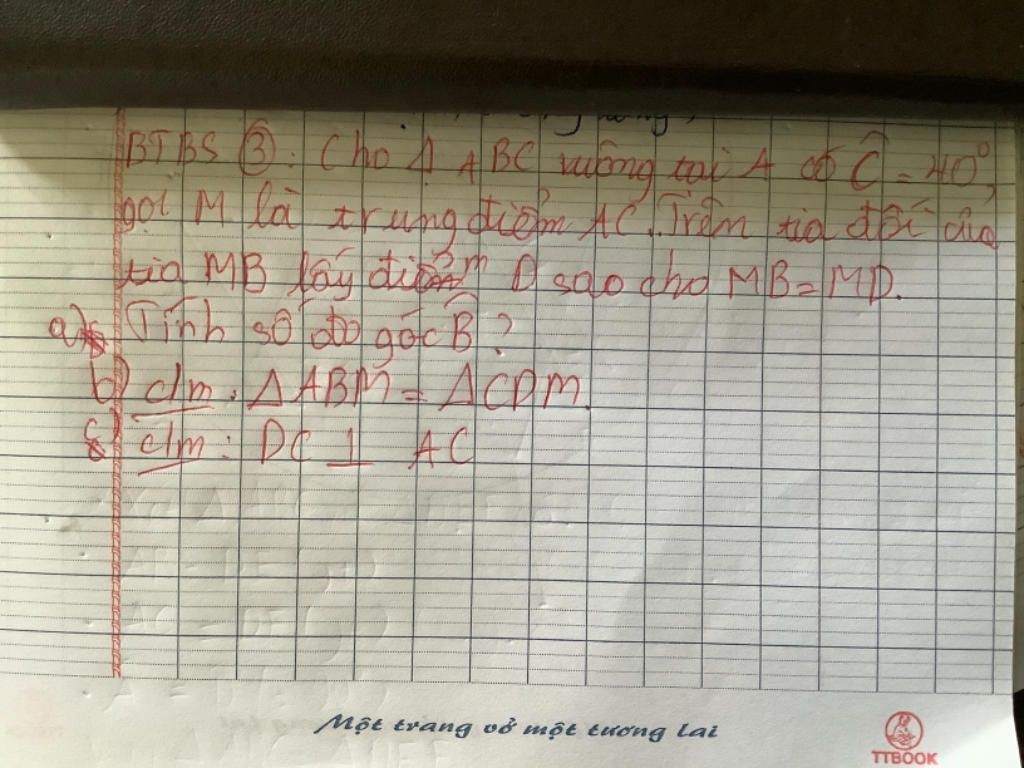 BTBS ③: Cho Δ ABC vuông tại A có Ĉ = 40°,
gọi M là trung điểm AC. Trên tia đối của
tia MB lấy điểm D sao cho MB = MD.
a) Tính số đo góc B̂ ?
b) c/m: ΔABM = ΔCDM.
c) c/m: DC ⊥ AC
Một trang vở một tương lai
TTBOOK